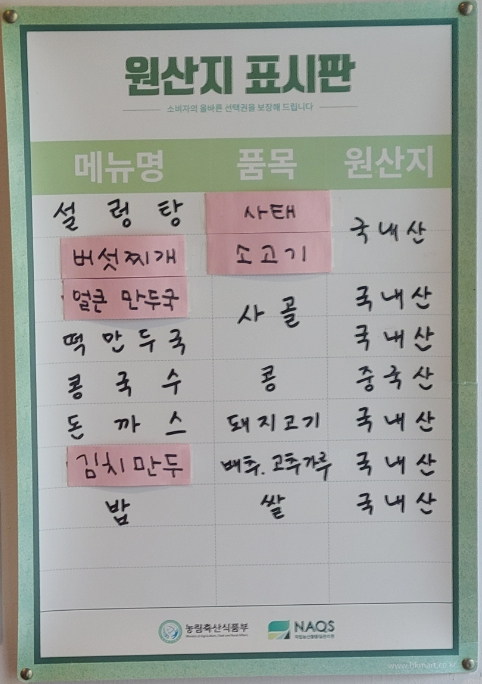 원산지 표시판
소비자의 올바른 선택권을 보장해 드립니다
메뉴명 품목 원산지
설렁탕 사태 국내산
버섯찌개 소고기
얼큰 만두국 사골 국내산
떡만두국 국내산
콩국수 콩 중국산
돈까스 돼지고기 국내산
김치만두 배추, 고추가루 국내산
밥 쌀 국내산
농림축산식품부 NAQS
국립농산물품질관리원
www.hkmart.co.kr